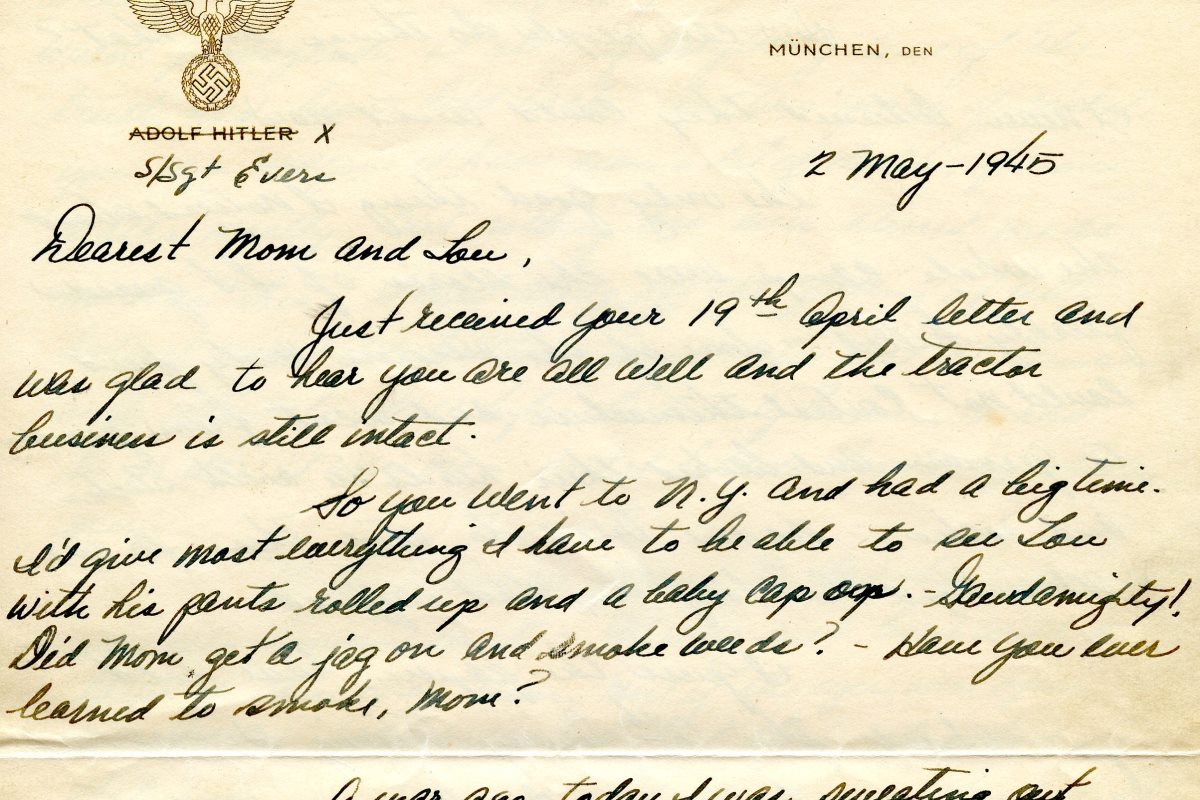 MÜNCHEN, DEN
ADOLF HITLER X
S/Sgt Evers
2 May-1945
Dearest Mom and Lou,
Just received your 19th April letter and
was glad to hear you are all well and the tractor
business is still intact.
So you went to N.Y. and had a big time.
I'd give most everything I have to be able to see Lou
with his pants rolled up and a baby cap on. - Gawdamighty!
Did Mom get a jag on and smoke weeds? - Have you ever
learned to smoke, Mom?
A year ago today I was sweating out